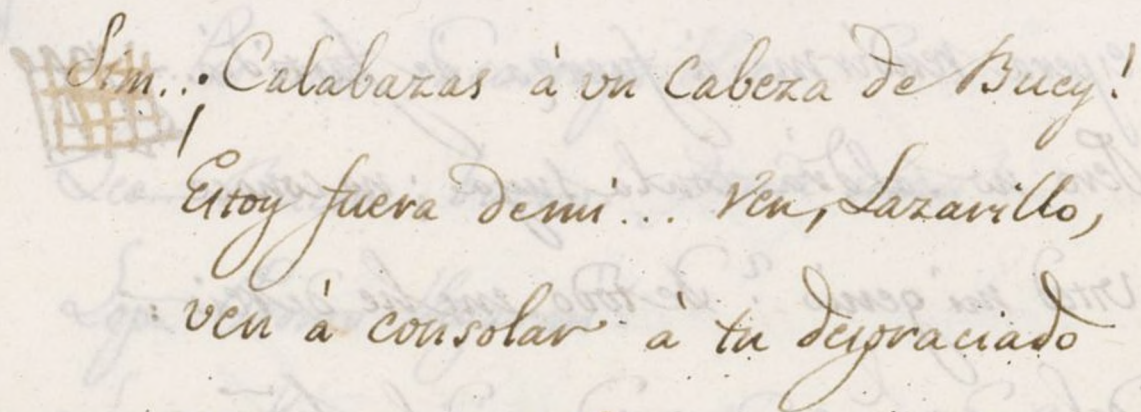 Sim..¡Calabazas à un Cabeza de Buey!
Estoy fuera demi... Ven, Lazarillo,
ven à consolar à tu desgraciado